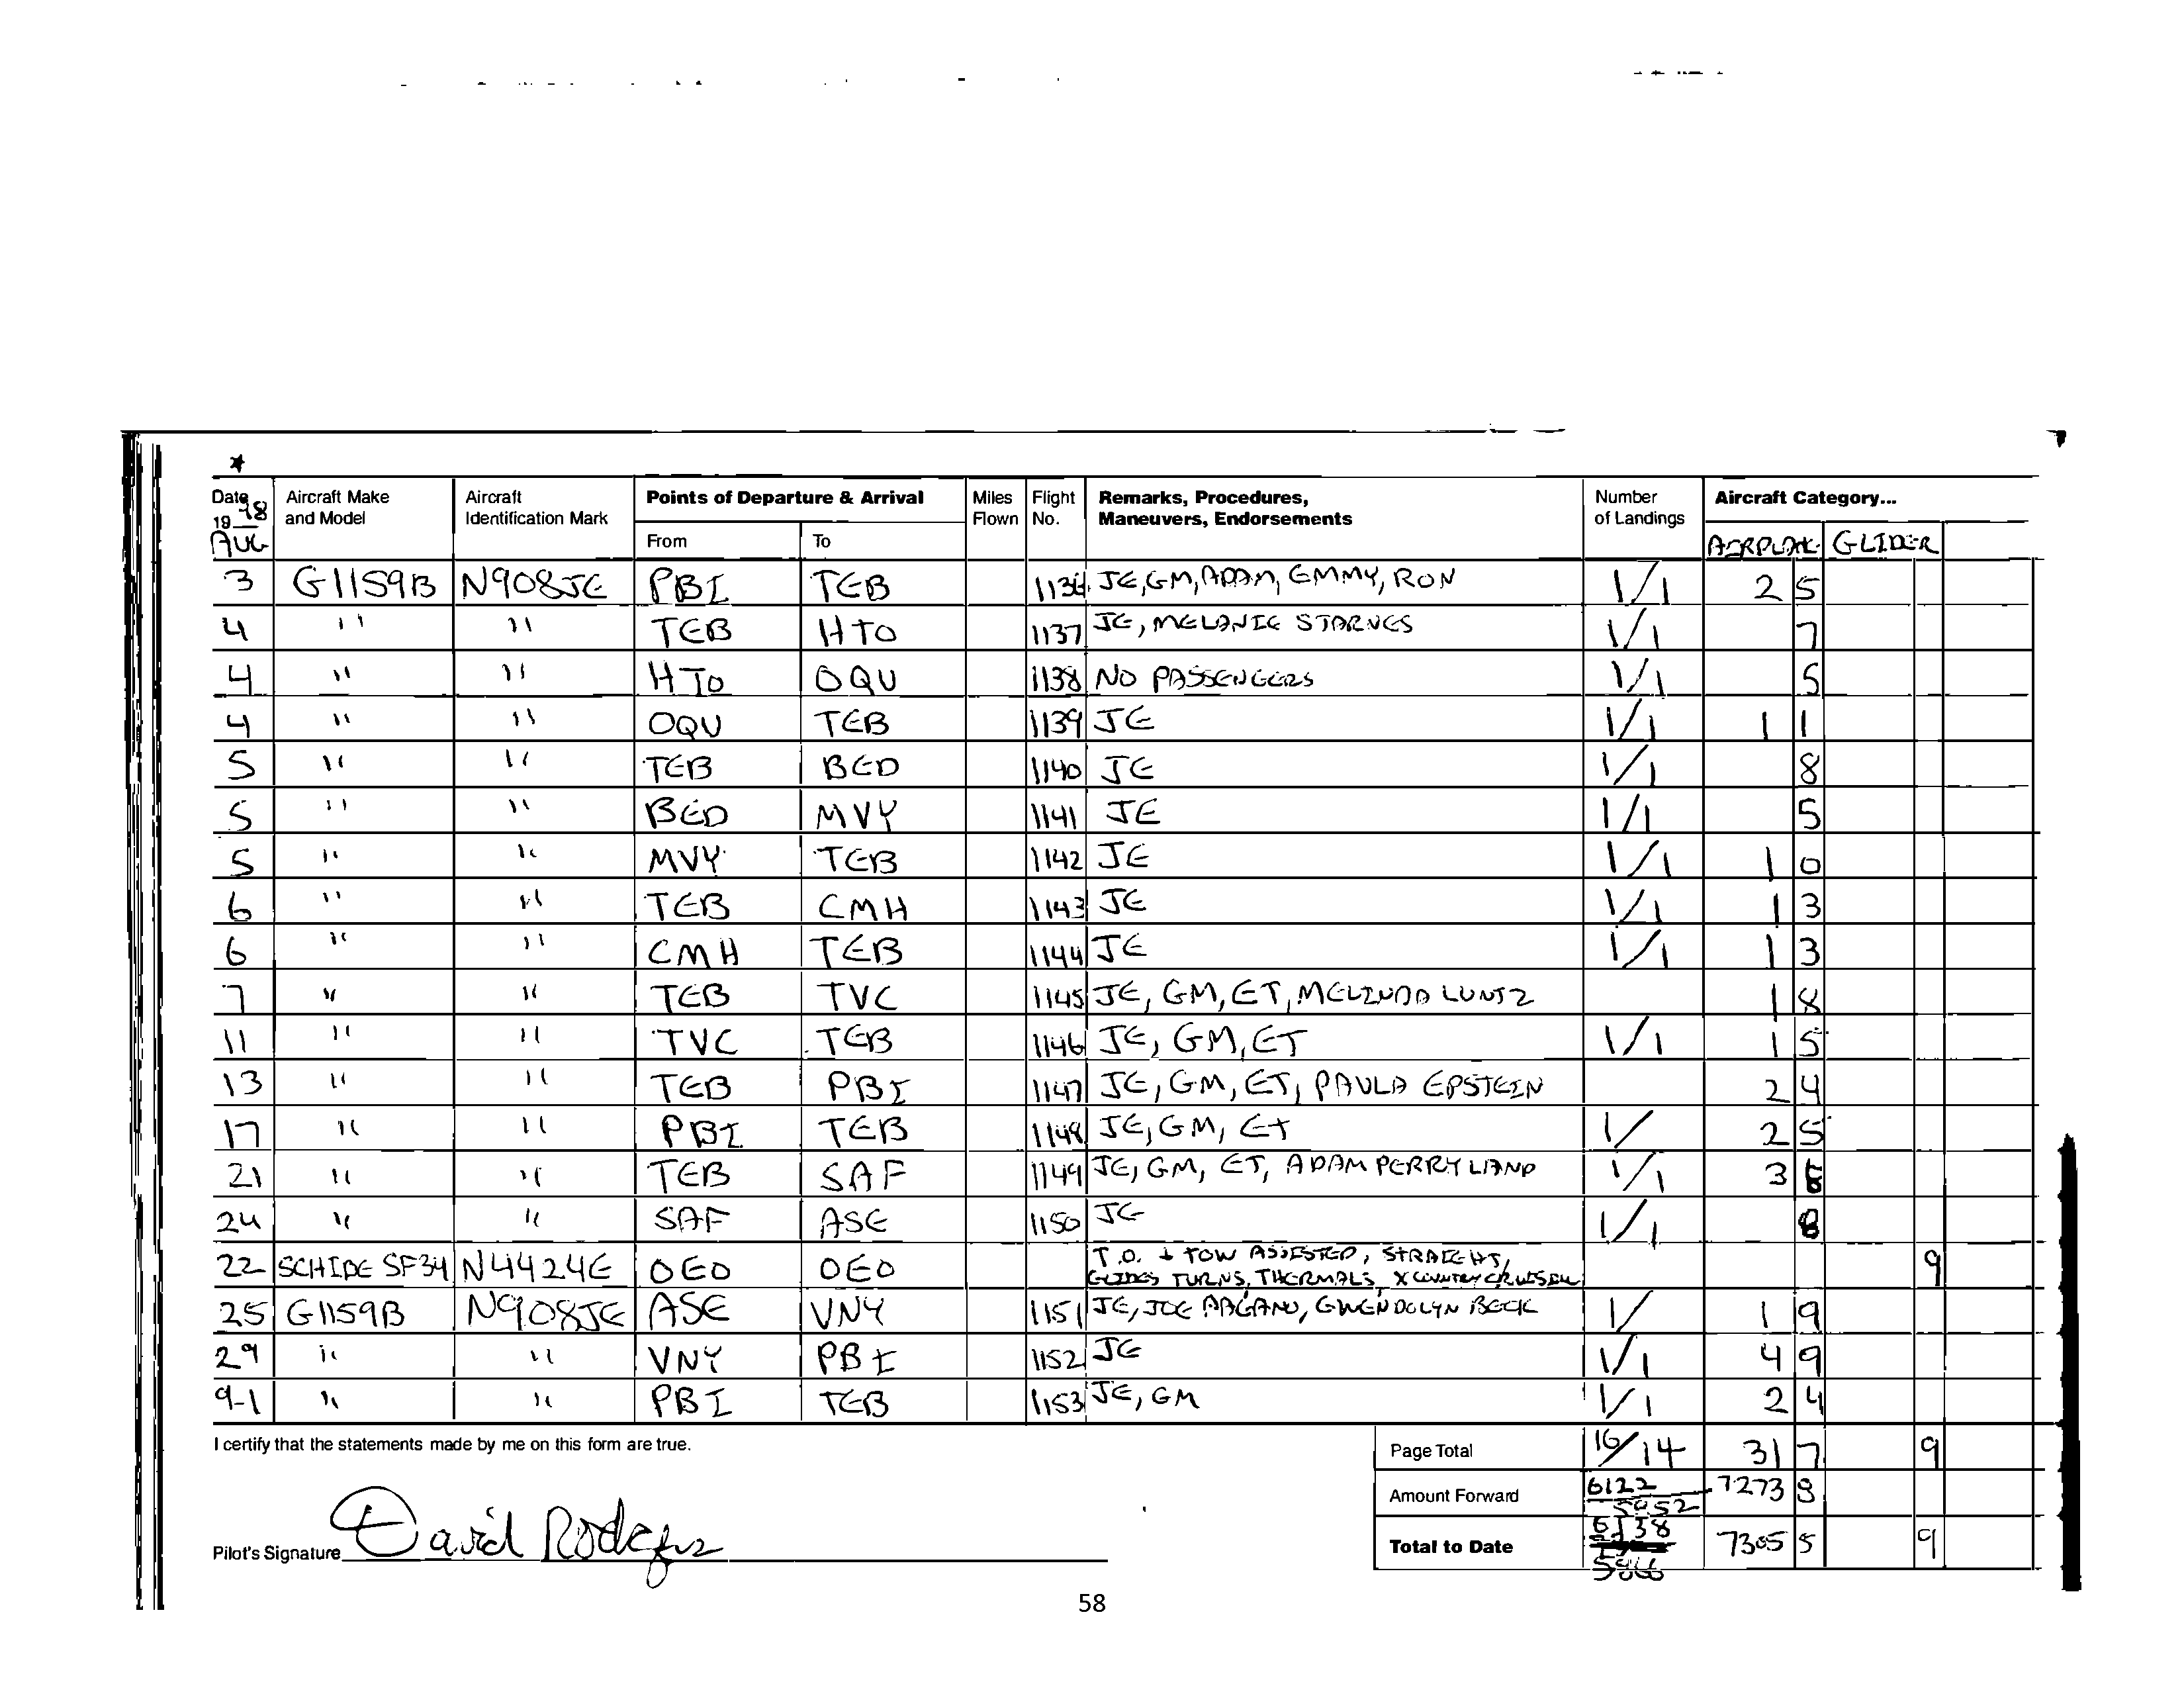 *
Date Aircraft Make Aircraft Points of Departure & Arrival Miles Flight Remarks, Procedures, Number Aircraft Category...
1998 and Model Identification Mark Flown No. Maneuvers, Endorsements of Landings
AUG From To AIRPLANE GLIDER
3 G1159B N908JE PBI TEB 1136 JE, GM, ADAM, EMMY, RON 1/1 2 5
4 " " TEB HTO 1137 JE, MELANIE STARNES 1/1 7
4 " " HTO OQU 1138 NO PASSENGERS 1/1 5
4 " " OQU TEB 1139 JE 1/1 1 1
5 " " TEB BED 1140 JE 1/1 8
5 " " BED MVY 1141 JE 1/1 5
5 " " MVY TEB 1142 JE 1/1 1 0
6 " " TEB CMH 1143 JE 1/1 1 3
6 " " CMH TEB 1144 JE 1/1 1 3
7 " " TEB TVC 1145 JE, GM, ET, MELINDA LUNTZ 1 8
11 " " TVC TEB 1146 JE, GM, ET 1/1 1 5
13 " " TEB PBI 1147 JE, GM, ET, PAULA EPSTEIN 2 4
17 " " PBI TEB 1148 JE, GM, ET 1/ 2 5
21 " " TEB SAF 1149 JE, GM, ET, ADAM PERRY LAND 1/1 3
24 " " SAF ASE 1150 JE 1/1 8
22 SCHIDE SF34 N4424E OEO OEO T.O. & TOW ASSISTED, STRAIGHT, 9
GLIDES TURNS, THERMALS, X COUNTRY
25 G1159B N908JE ASE VNY 1151 JE, JOE PAGANO, GWENDOLYN BECK 1/ 1 9
29 " " VNY PBI 1152 JE 1/1 4 9
9-1 " " PBI TEB 1153 JE, GM 1/1 2 4
I certify that the statements made by me on this form are true.
Page Total 16/14 31 7 9
Amount Forward 6122 5952 7273 8
Total to Date 6138 5966 7305 5 9
Pilot's Signature David Rodgers
58